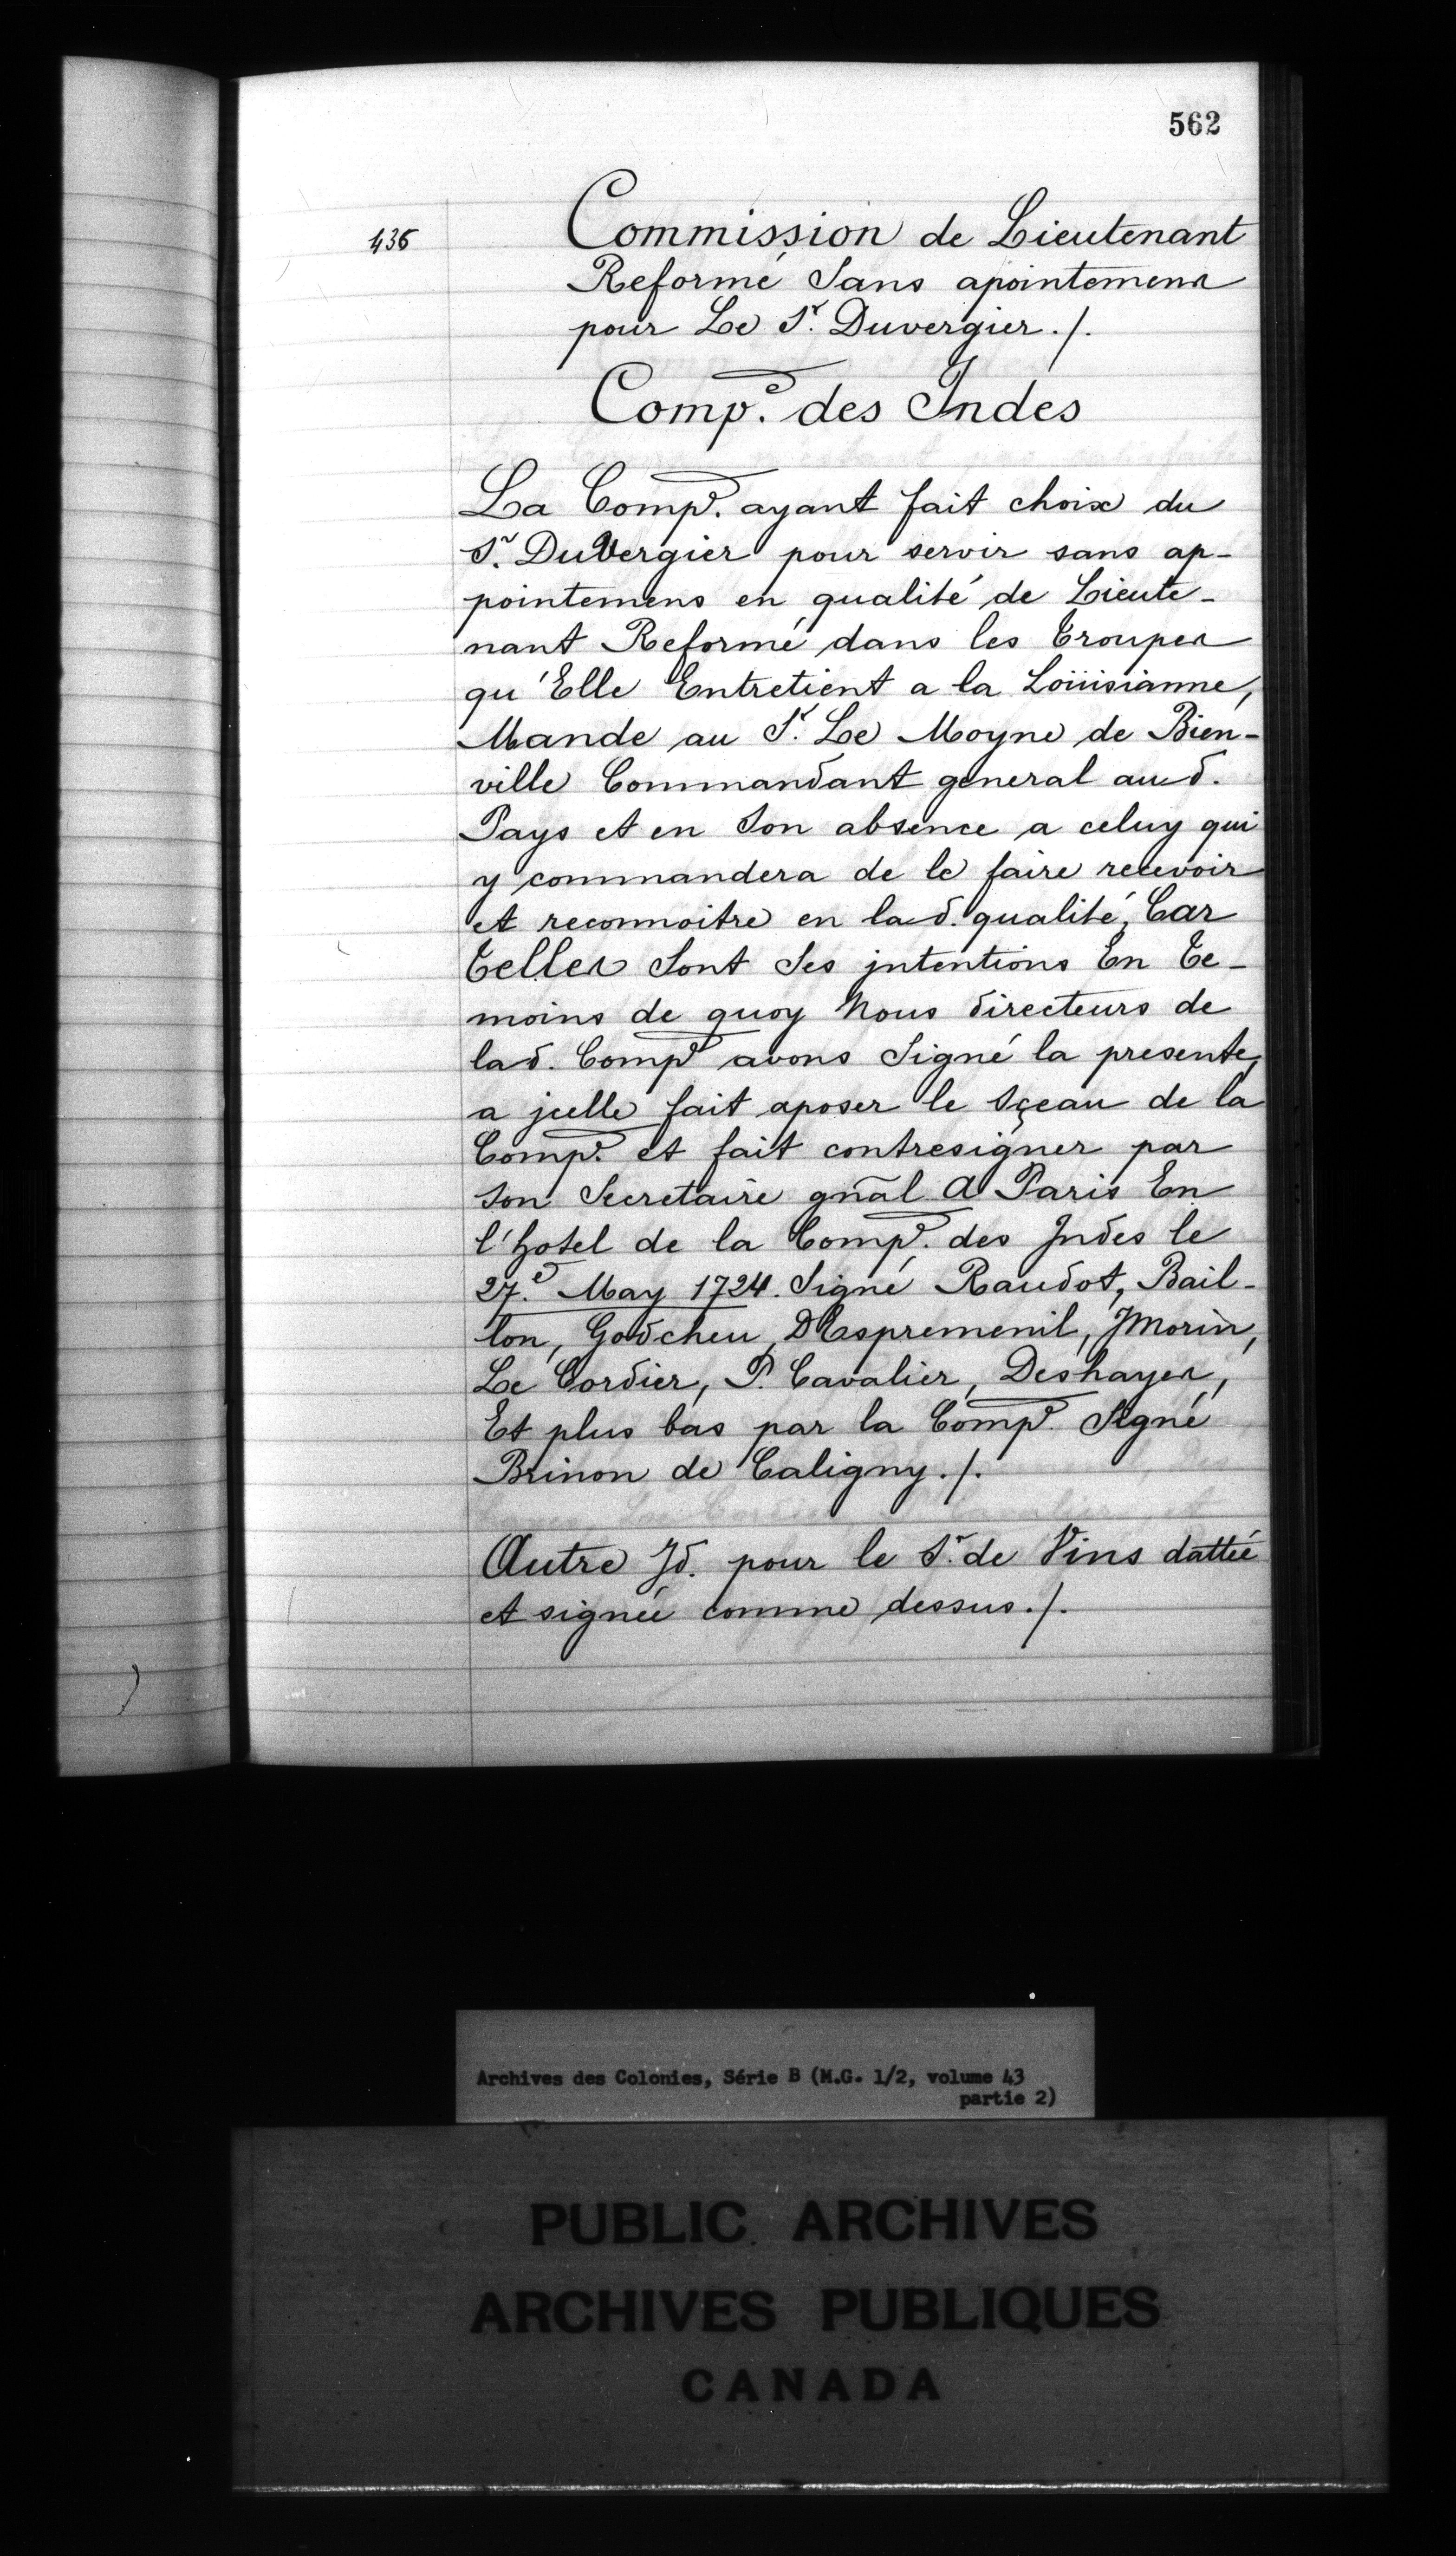 562
436
Commission de Lieutenant
Reformé Sans apointemens
pour Le Sr. Duvergier./.
Compe. des Indes
La Compe. ayant fait choix du
Sr. DuVergier pour servir sans ap-
pointemens en qualité de Lieute-
nant Reformé dans les Troupes
qu'Elle Entretient a la Loüisianne,
Mande au Sr. Le Moyne de Bien-
ville Commandant general aud.
Pays et en Son absence a celuy qui
y commandera de le faire recevoir
et reconnoitre en lad. qualité, Car
Telles Sont Ses jntentions En Te-
moins de quoy Nous directeurs de
lad. Compe avons Signé la presente,
a jcelle fait aposer le Sçeau de la
Compe. et fait contresigner par
Son Secretaire gñal A Paris En
l'hotel de la Compe. des Jndes le
27.e May 1724. Signé Raudot, Bail-
lon, Godcheu, D'Espremenil, JMorin,
Le Cordier, P. Cavalier, Deshayes,
Et plus bas par la Compe. Signé
Brinon de Caligny./.
Autre Jd. pour le Sr. de Vins dattée
et signée comme dessus./.
Archives des Colonies, Série B (M.G. 1/2, volume 43
partie 2)
PUBLIC ARCHIVES
ARCHIVES PUBLIQUES
CANADA